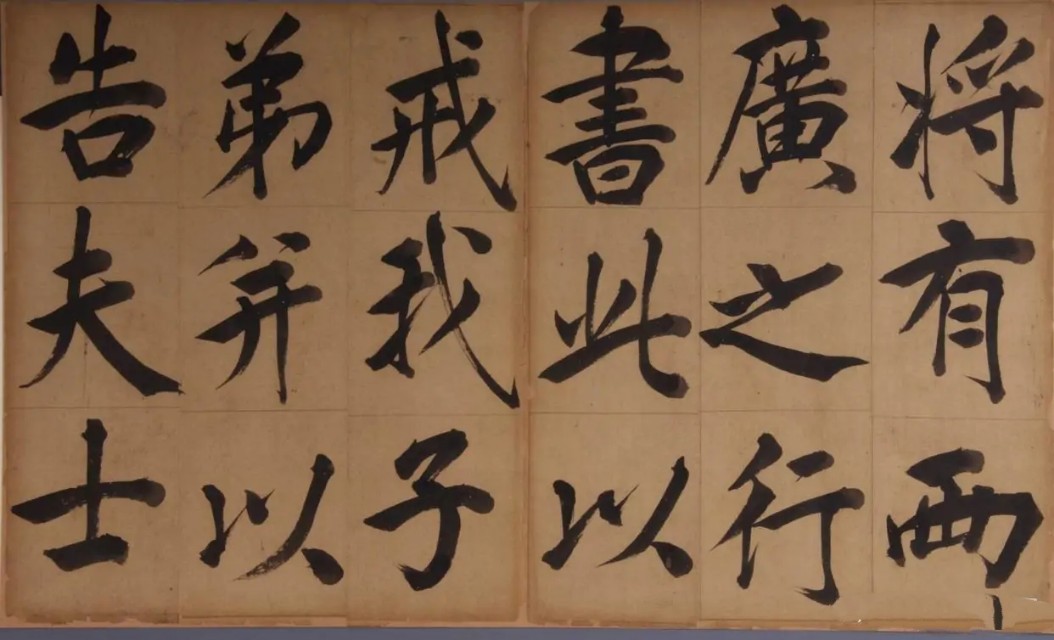 将有两
廣之行
書此以
戒我子
弟并以
告夫士